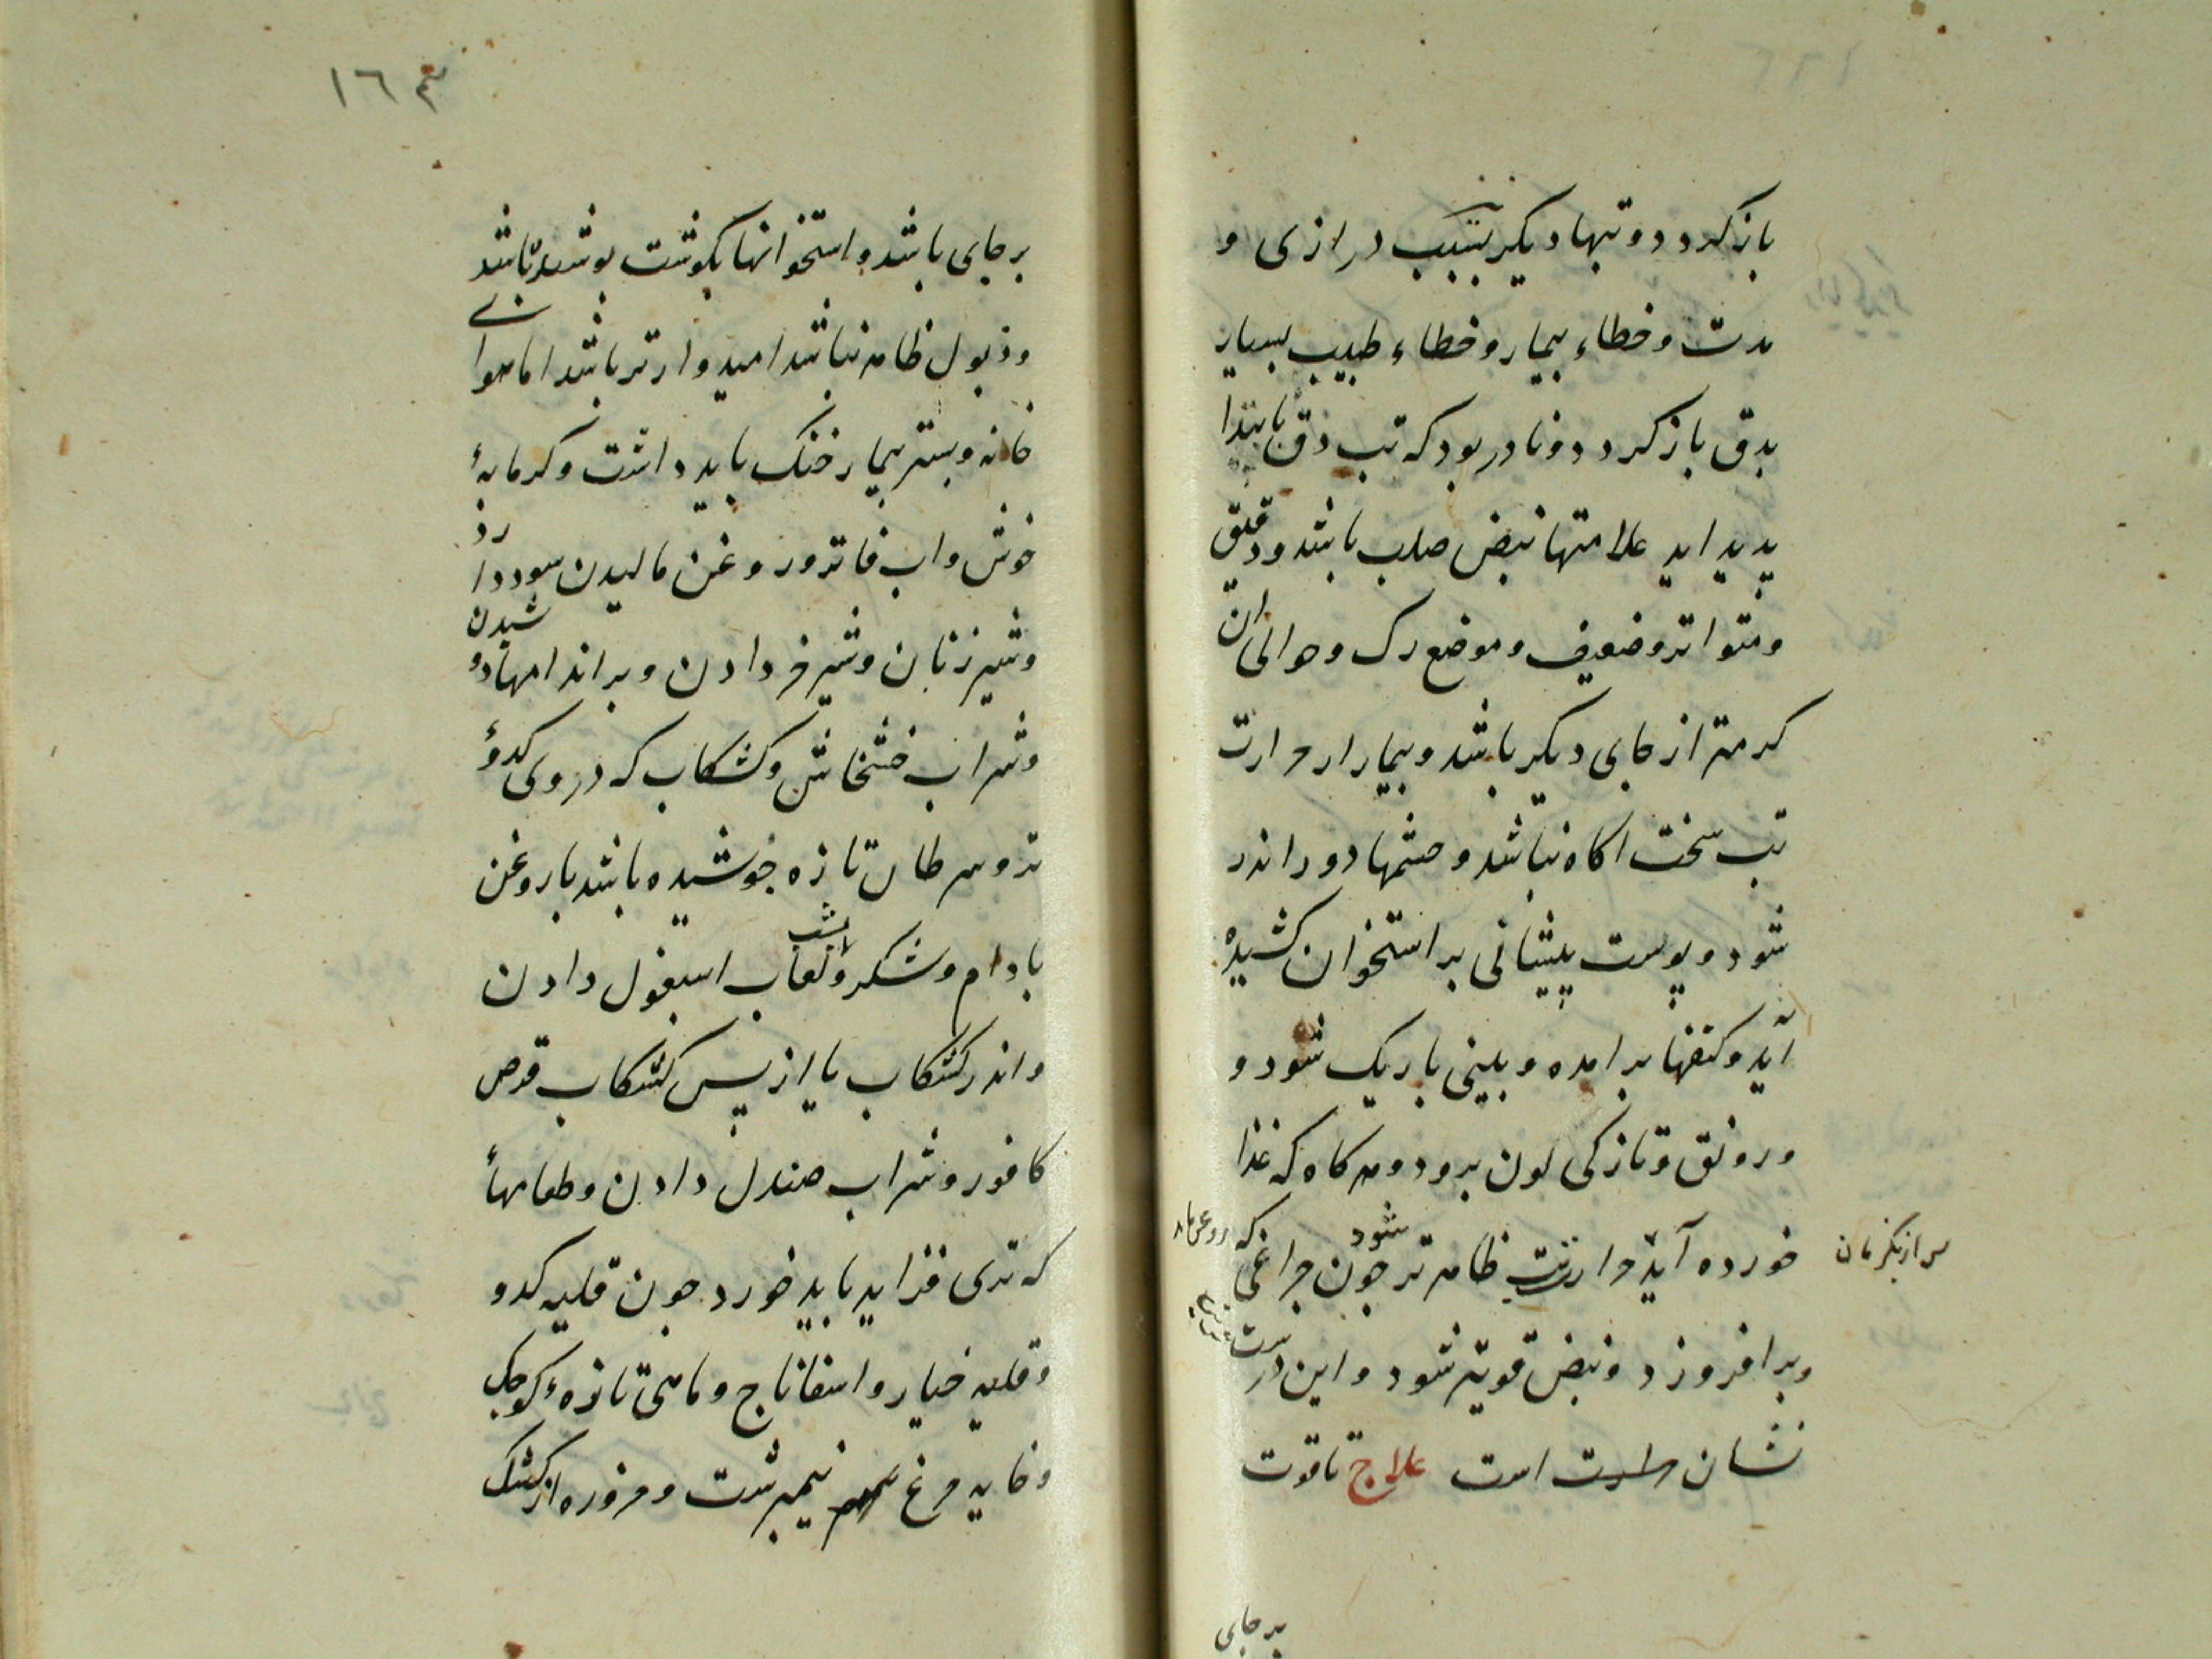 باز کردد و تبهاء دیکر بسبب درازی و
مدت و خطاء بیمار و خطاء طبیب بسیار
بدق باز کردد و نادر بود که تب دق بابتدا
پدید اید علامتها نبض صلب باشد و دقیق
و متواتر و ضعیف و موضع رک و حوالی ان
کرمتر از جای دیکر باشد و بیمار از حرارت
تب سخت اکاه نباشد و چشمها دور اندر
شود و پوست پیشانی بر استخوان کشیده
آید و کتفها برامده و بینی باریک شود و
و رونق و تازکی لون برود و هر کاه که غذا
خورده آید حرارت تب ظاهرتر شود چون چراغی که
و بر افروزد و نبض قویتر شود و این درست
نشان است علاج تا قوت
بر جای
١٦٣
بر جای باشد و استخوانها بکوشت پوشیده باشد
و ذبول ظاهر نباشد امیدوارتر باشد اما هوای
خانه و بستر بیمار خنک باید داشت و کرمابهٔ
خوش و اب فاتر و روغن مالیدن سود دارد
و شیر زنان و شیر خر دادن و بر اندامها دوشیدن
و شراب خشخاش و کشکاب که در وی کدؤ
تر و سرطان تازه جوشیده باشد با روغن
بادام و شکر و بشب لعاب اسبغول دادن
و اندر کشکاب یا از پس کشکاب قرص
کافور و شراب صندل دادن و طعامهأ
که تری فزاید باید خورد چون قلیه کدو
و قلیه خیار و اسفاناج و ماهی تازهٔ کوچک
و خایه مرغ نیمبرشت و مزوره از کشک